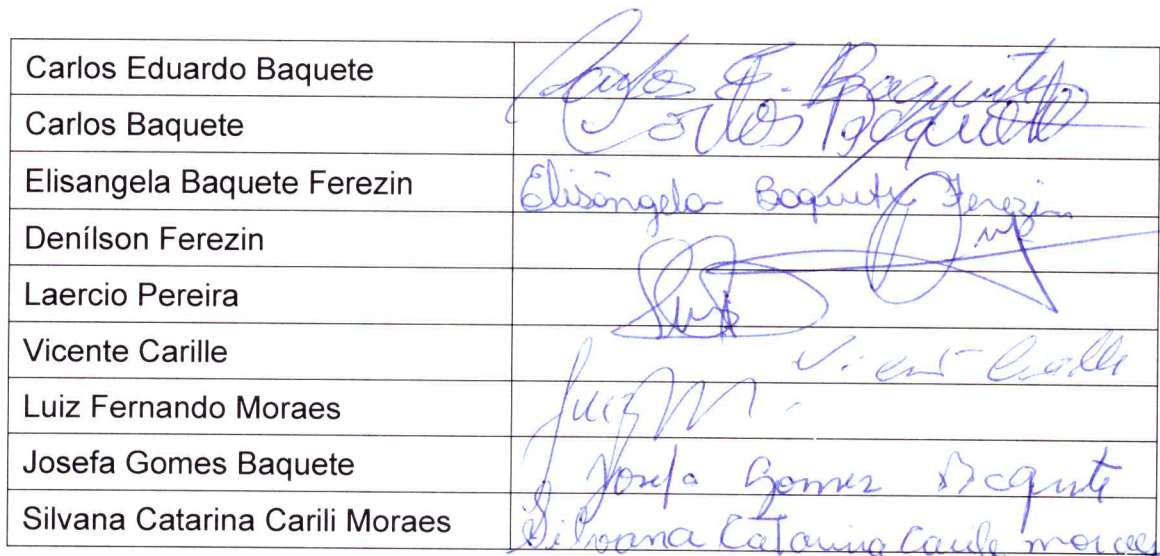 Carlos Eduardo Baquete Carlos E. Baquete
Carlos Baquete Carlos Baquete
Elisangela Baquete Ferezin Elisângela Baquete Ferezin
Denílson Ferezin
Laercio Pereira
Vicente Carille Vicente Carille
Luiz Fernando Moraes Luiz M.
Josefa Gomes Baquete Josefa Gomes Baquete
Silvana Catarina Carili Moraes Silvana Catarina Carile moraes